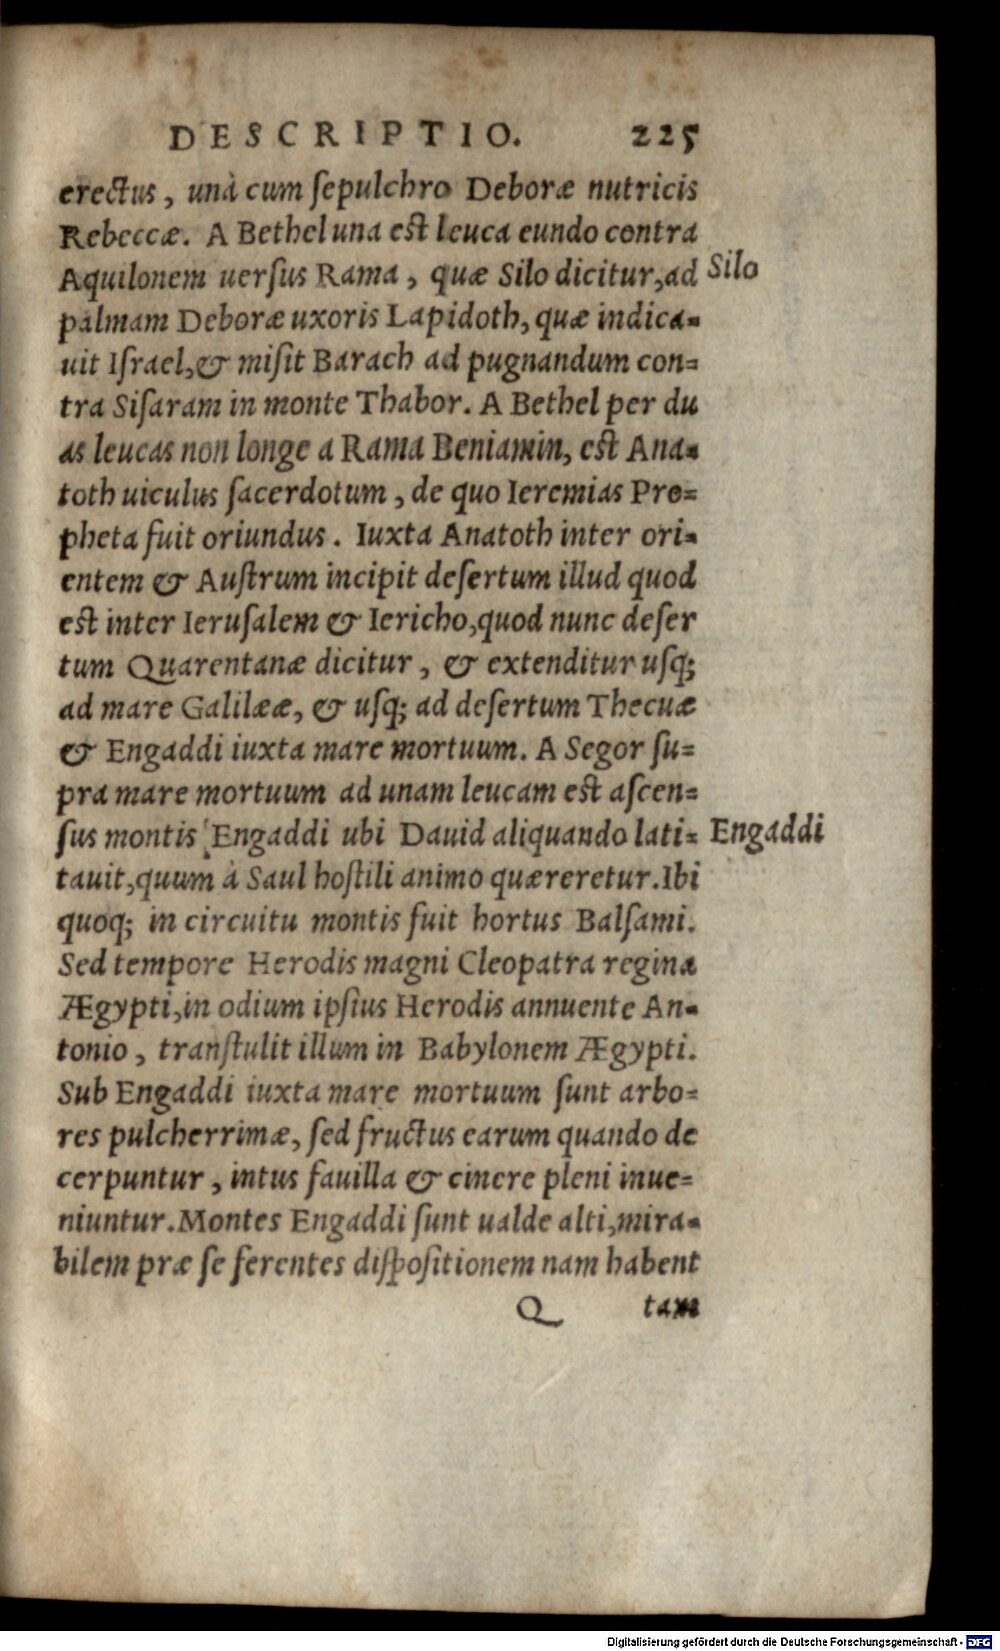 DESCRIPTIO. 225
erectus, unà cum ſepulchro Deboræ nutricis
Rebeccæ. A Bethel una est leuca eundo contra
Aquilonem uerſus Rama, quæ Silo dicitur, ad Silo
palmam Deboræ uxoris Lapidoth, quæ indica-
uit Iſrael, & miſit Barach ad pugnandum con-
tra Siſaram in monte Thabor. A Bethel per du
as leucas non longe a Rama Beniamin, est Ana-
toth uiculus ſacerdotum, de quo Ieremias Pro-
pheta fuit oriundus. Iuxta Anatoth inter ori-
entem & Auſtrum incipit deſertum illud quod
est inter Ieruſalem & Iericho, quod nunc deſer
tum Quarentanæ dicitur, & extenditur uſq;
ad mare Galilææ, & uſq; ad deſertum Thecuæ
& Engaddi iuxta mare mortuum. A Segor ſu-
pra mare mortuum ad unam leucam est aſcen-
ſus montis Engaddi ubi Dauid aliquando lati- Engaddi
tauit, quum à Saul hoſtili animo quæreretur. Ibi
quoq; in circuitu montis fuit hortus Balſami.
Sed tempore Herodis magni Cleopatra regina
Ægypti, in odium ipſius Herodis annuente An-
tonio, tranſtulit illum in Babylonem Ægypti.
Sub Engaddi iuxta mare mortuum ſunt arbo-
res pulcherrimæ, ſed fructus earum quando de
cerpuntur, intus fauilla & cinere pleni inue-
niuntur. Montes Engaddi ſunt ualde alti, mira-
bilem præ ſe ferentes diſpoſitionem nam habent
Q tam
Digitalisierung gefördert durch die Deutsche Forschungsgemeinschaft - DFG